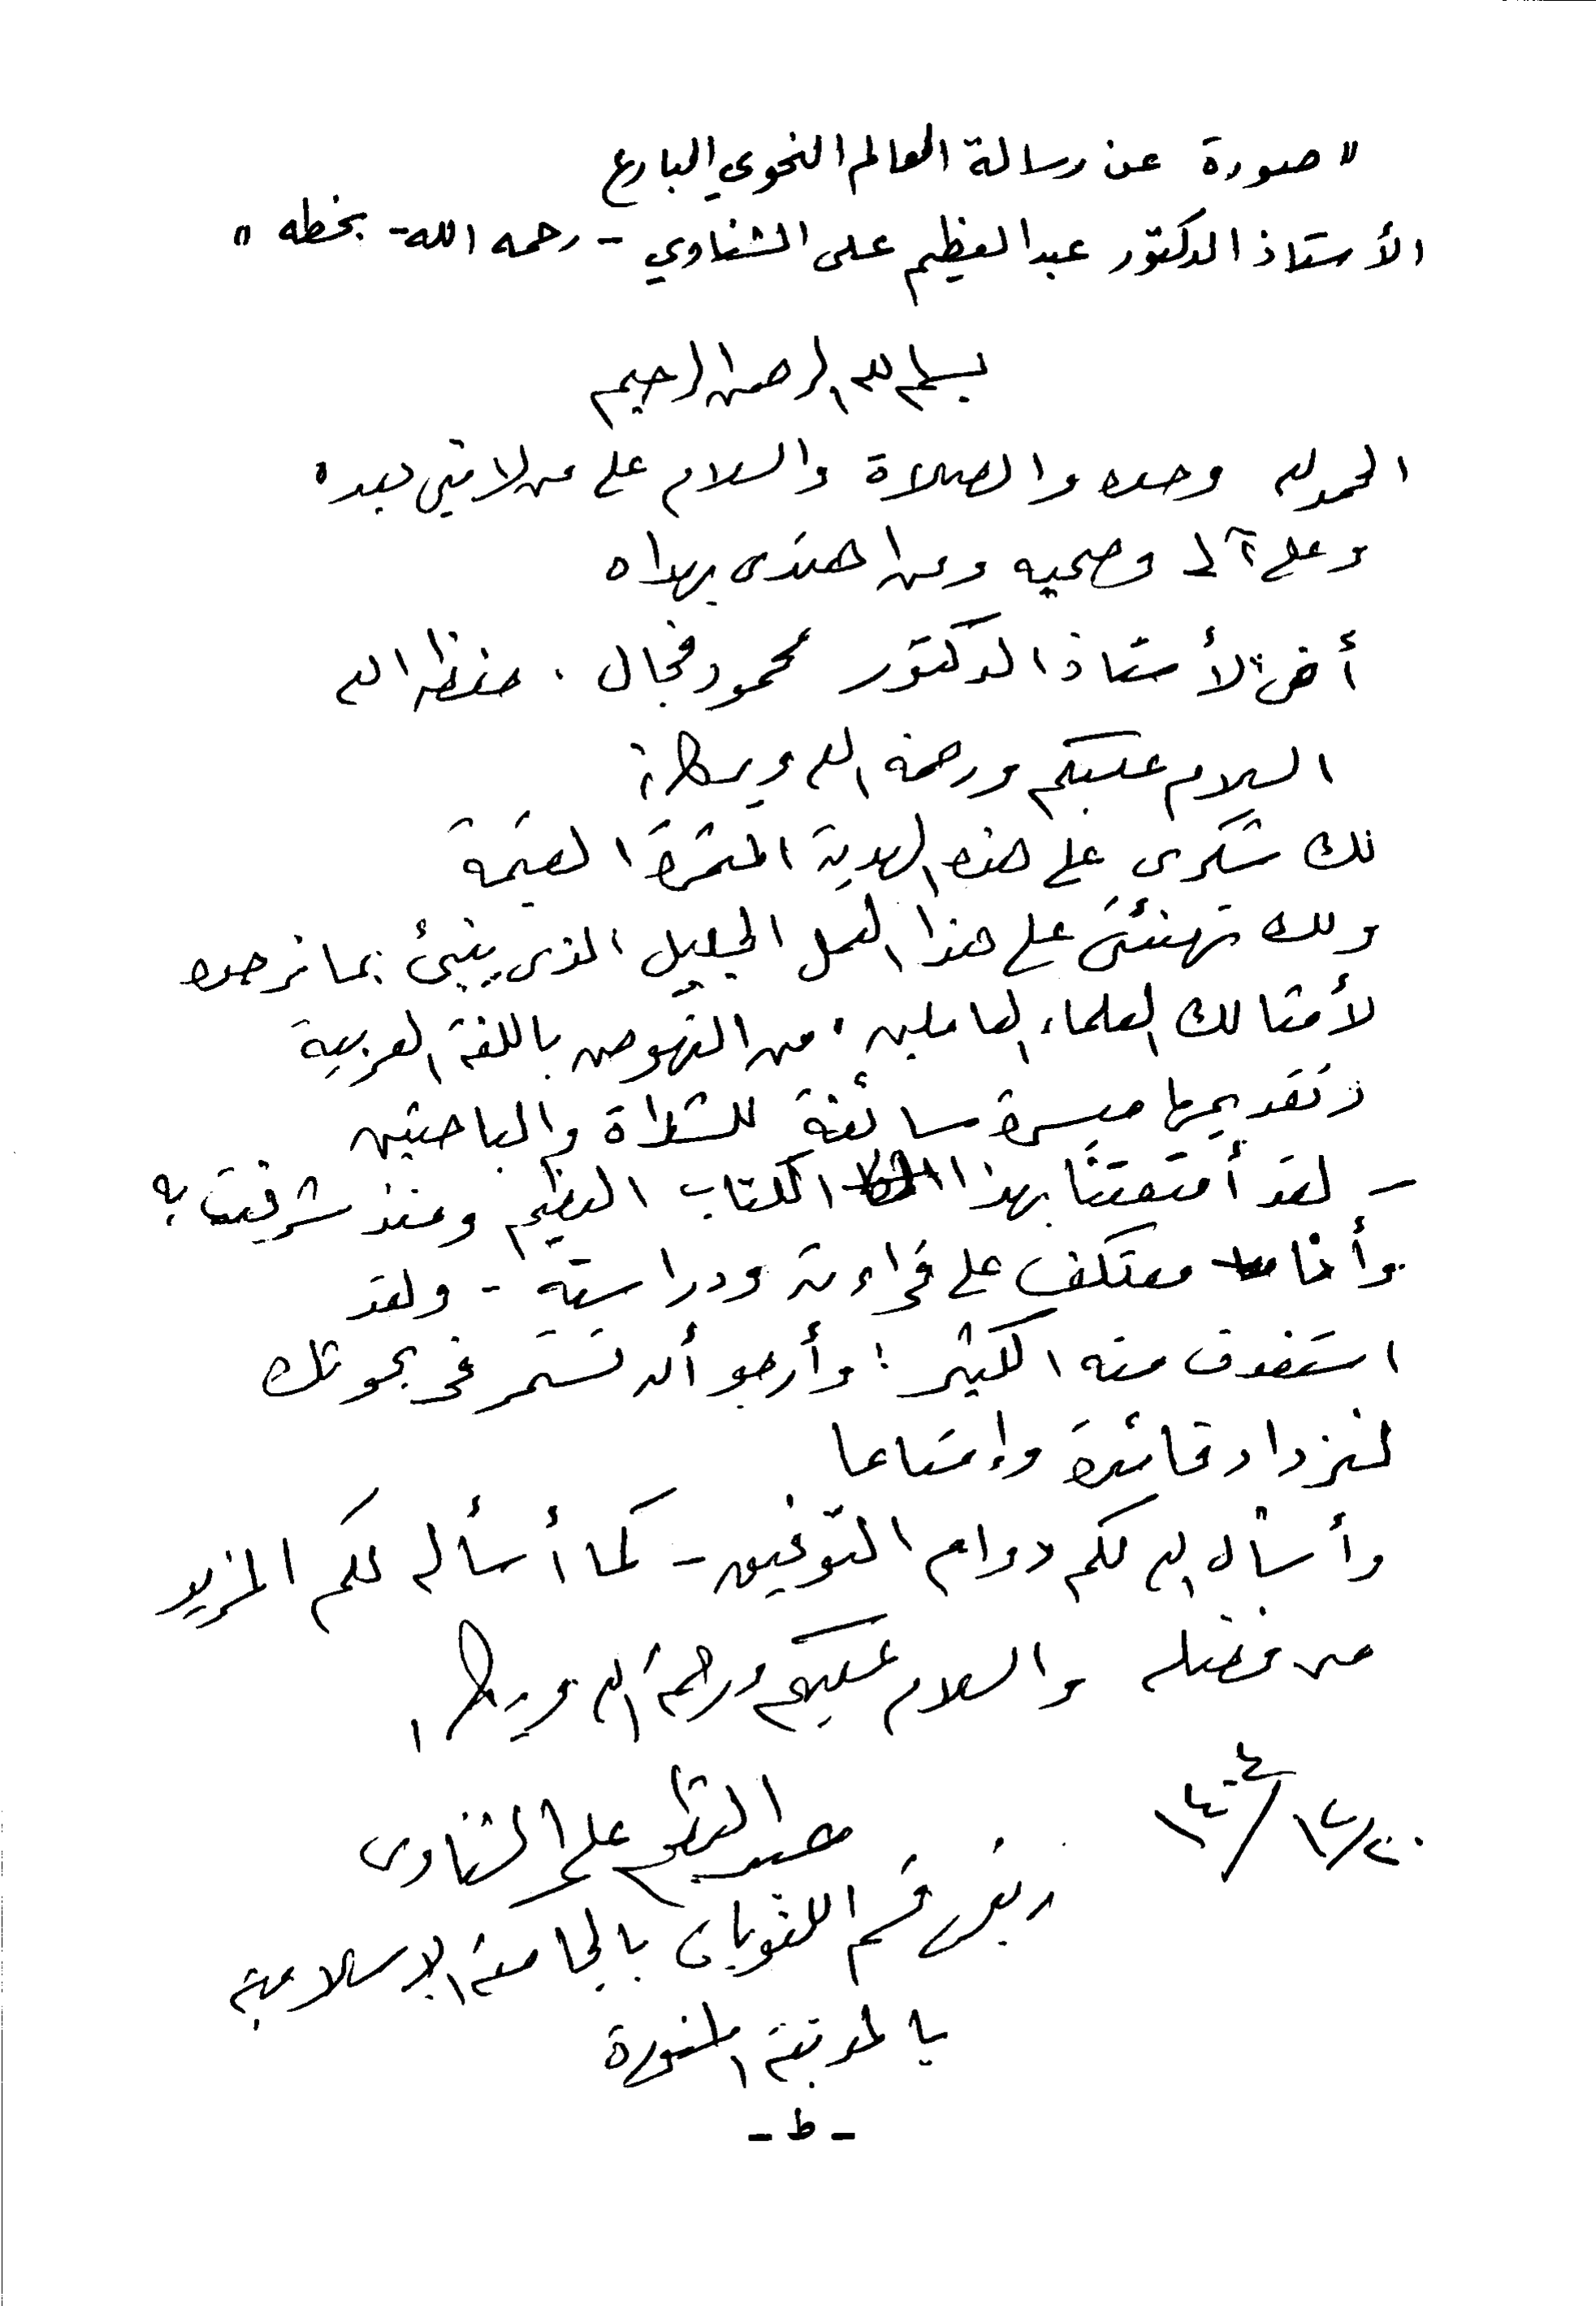 " صورة عن رسالة العالم النحوي البارع
الأستاذ الدكتور عبد العظيم على الشناوي - رحمه الله - بخطه "
بسم الله الرحمن الرحيم
الحمد لله وحده والصلاة والسلام على من لا نبي بعده
وعلى آله وصحبه ومن اهتدى بهداه
أخي الأستاذ الدكتور محمود فجال . حفظه الله
السلام عليكم ورحمة الله وبركاته
لك شكرى على هذه الهدية المثمرة القيمة
ولك تهنئتى على هذا العمل الجليل الذى ينبئ بما نرجوه
لأمثالك العلماء العاملين . من النهوض باللغة العربية
وتقديمها ميسرة سائغة للشداة والباحثين
- لقد أمتعتنا بهذا الكتاب العظيم ومنذ شرفت به
وأنا معتكف على قراءته ودراسته - ولقد
استفدت منه الكثير ؛ وأرجو أن تستمر فى بحوثك
لنزداد فائدة وإمتاعا
وأسأل الله لكم دوام التوفيق - كما أسأله لكم المزيد
من فضله والسلام عليكم ورحمة الله وبركاته
عبد العظيم على الشناوى
رئيس قسم اللغويات بالجامعة الإسلامية
بالمدينة المنورة
- ط -